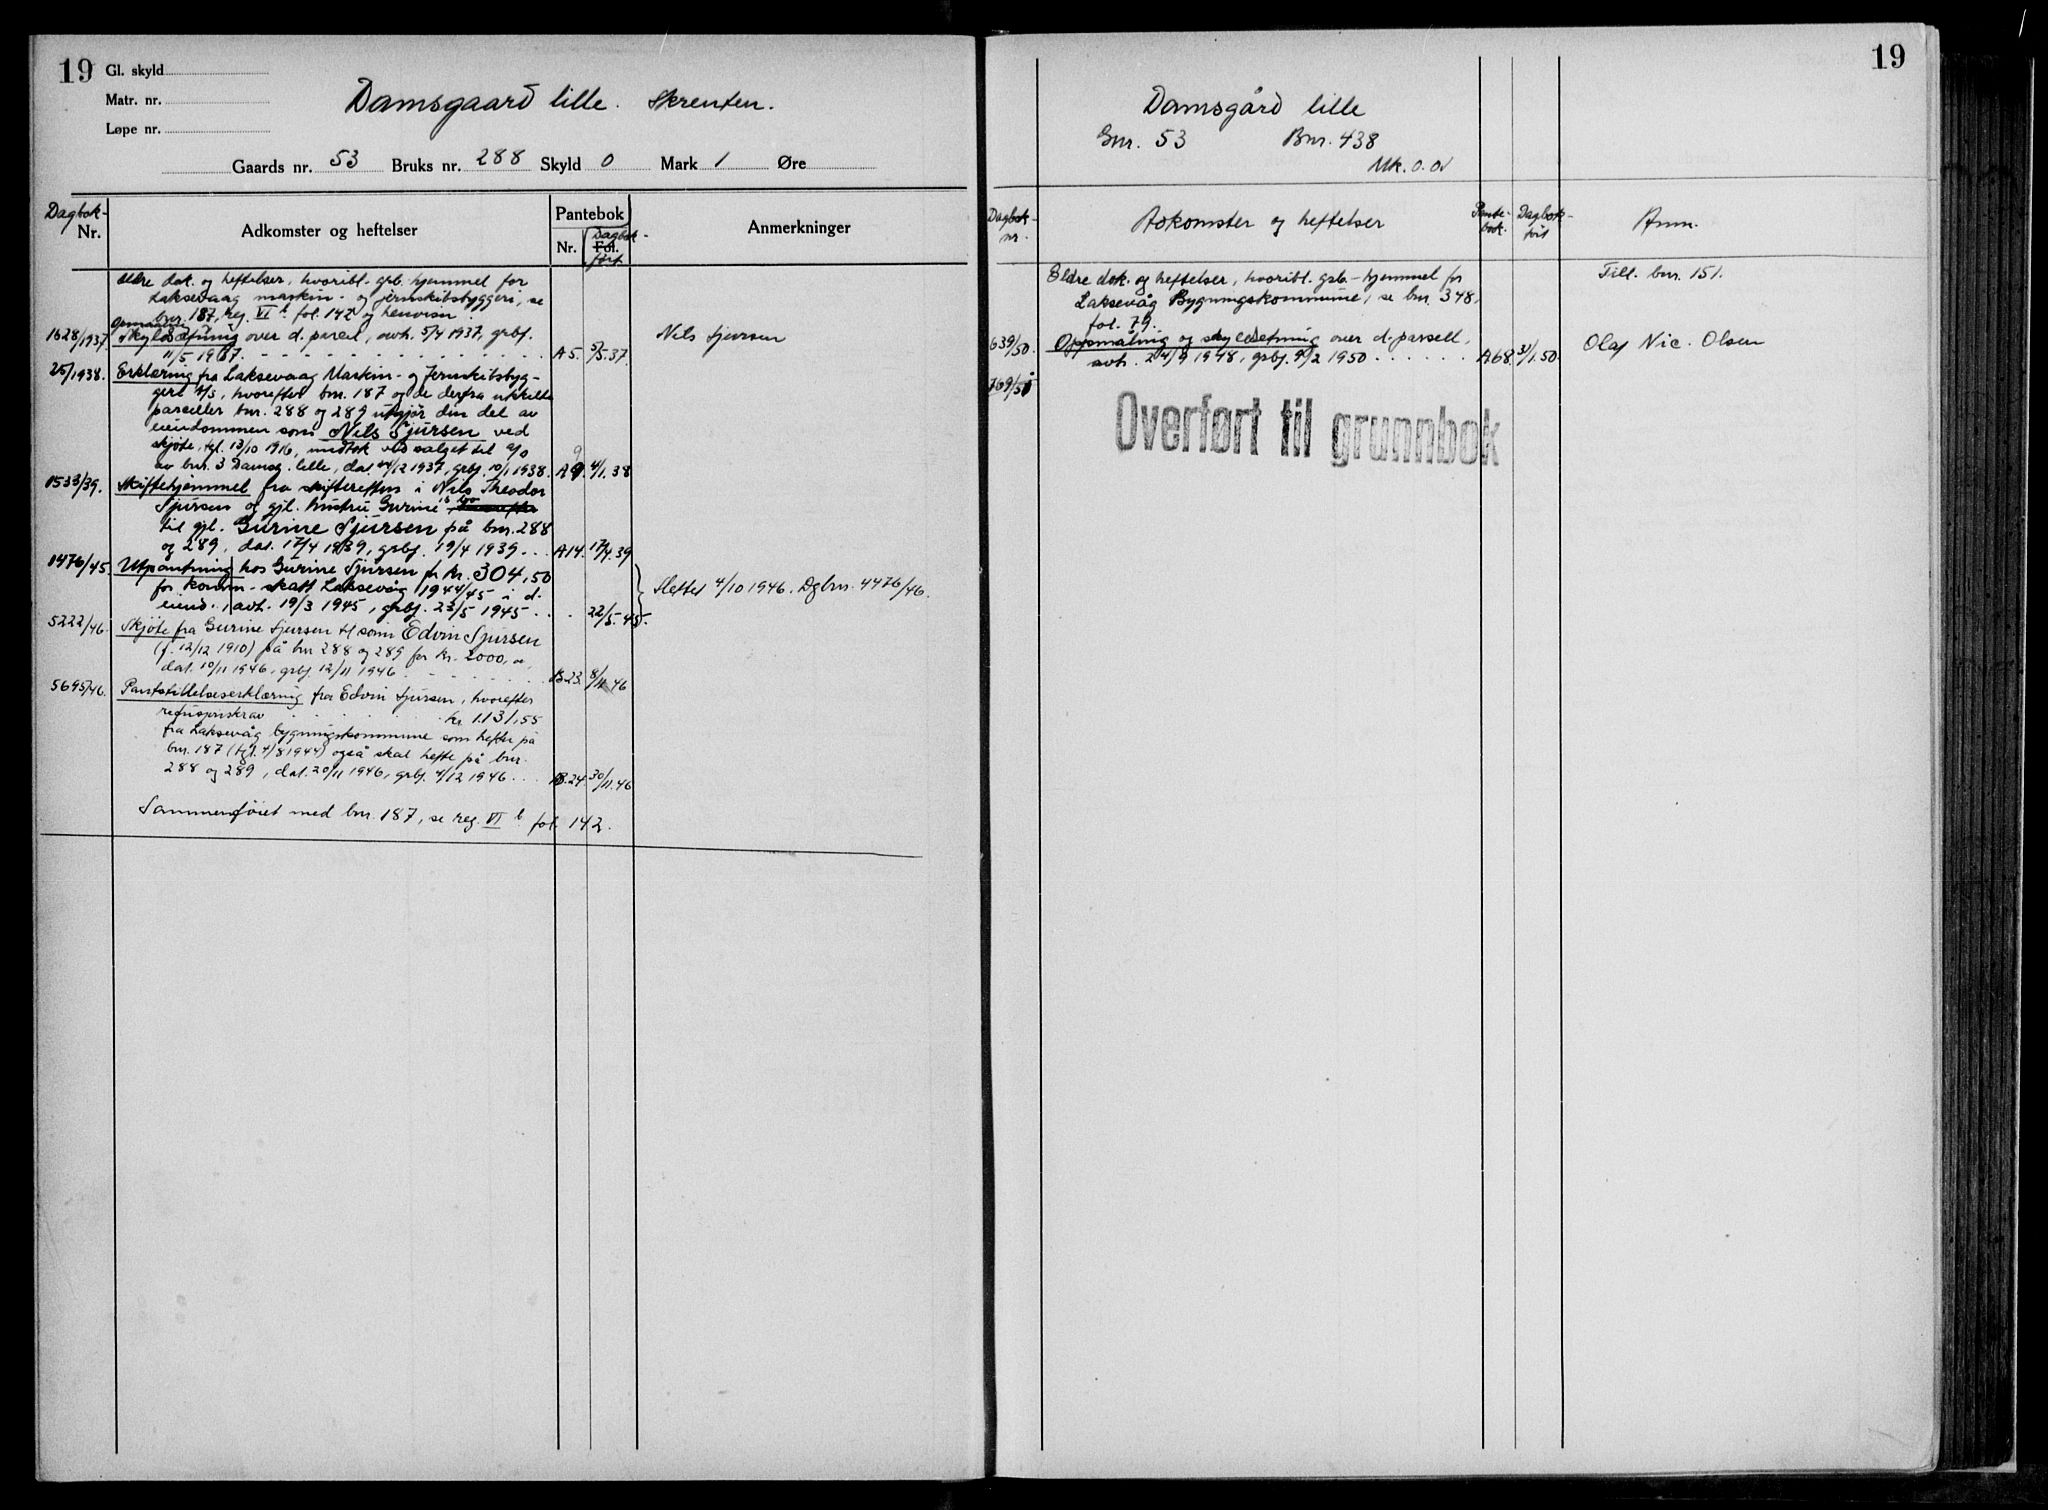 19
Gl. skyld
Matr. nr.
Løpe nr.
Damsgaard lille. Skrenten.
Gaards nr. 53 Bruks nr. 288 Skyld 0 Mark 1 Øre
Dagbok-
Nr.
Adkomster og heftelser
Pantebok
Nr.
Fol.
Dagbok-
ført
Anmerkninger
Eldre dok. og heftelser, hvoribl. grb. hjemmel for
Laksevaag maskin- og jernskibsbyggeri, se
bnr. 187, reg. VI b fol. 142 og henvisn.
Opmaaling
1628/1937 Skyldsætning over d. parcel, avh. 5/4 1937, grbf.
11/5 1937. A 5. 5/5.37. Nils Sjursen
25/1938. Erklæring fra Laksevaag Maskin- og Jernskibsbyg-
geri A/S, hvorefter bnr. 187 og de derfra utskilte
parceller bnr. 288 og 289 utgjør den del av
eiendommen som Nils Sjursen ved
skjøte, tgl. 13/10 1916, undtok ved salget til
av bnr. 3 Damsg. lille, dat. 14/12 1937, grbf. 10/1 1938. A 9. 4/1.38
1533/39. Skiftehjemmel fra skifteretten i Nils Theodor
Sjursen og gjl. hustru Gurine's bo
til gjl. Gurine Sjursen på bnr. 288
og 289, dat. 17/4 1939, grbf. 19/4 1939. A 14. 17/4.39
1476/45. Utpantning hos Gurine Sjursen for kr. 304,50
for komm-skatt Laksevåg 1944/45 i d.
eiend., avh. 19/3 1945, grbf. 23/5 1945. 22/5.45.
Slettet 4/10 1946. Dgbnr. 4476/46.
5222/46. Skjøte fra Gurine Sjursen til sønn Edvin Sjursen
(f. 12/12 1910) på bnr 288 og 289 for kr. 2000,
dat. 10/11 1946, grbf. 12/11 1946 B 23. 8/11 46
5695/46. Pantstillelseserklæring fra Edvin Sjursen, hvorefter
refusjonskrav kr. 1131,55
fra Laksevåg bygningskommune som hefter på
bnr. 187 (tgl. 4/8 1944) også skal hefte på bnr.
288 og 289, dat. 20/11 1946, grbf. 4/12 1946. B.24 30/11.46
Sammenføiet med bnr. 187, se reg. VI b. fol. 142.
19
Damsgård lille
Gnr. 53 Bnr. 438
Mk. 0.01
Dagbok-
nr.
Adkomster og heftelser
Pante-
bok.
Dagbok-
ført
Anm.
Eldre dok. og heftelser, hvoribl. grb-hjemmel for
Laksevåg Bygningskommune, se bnr. 348,
fol. 79.
Till. bnr. 151.
639/50. Oppmåling og skyldsetning over d. parsell,
avh. 24/9 1948, grbf. 9/2 1950 A 68. 31/1.50. Olaf Nic. Olsen
769/51
Overført til grunnbok